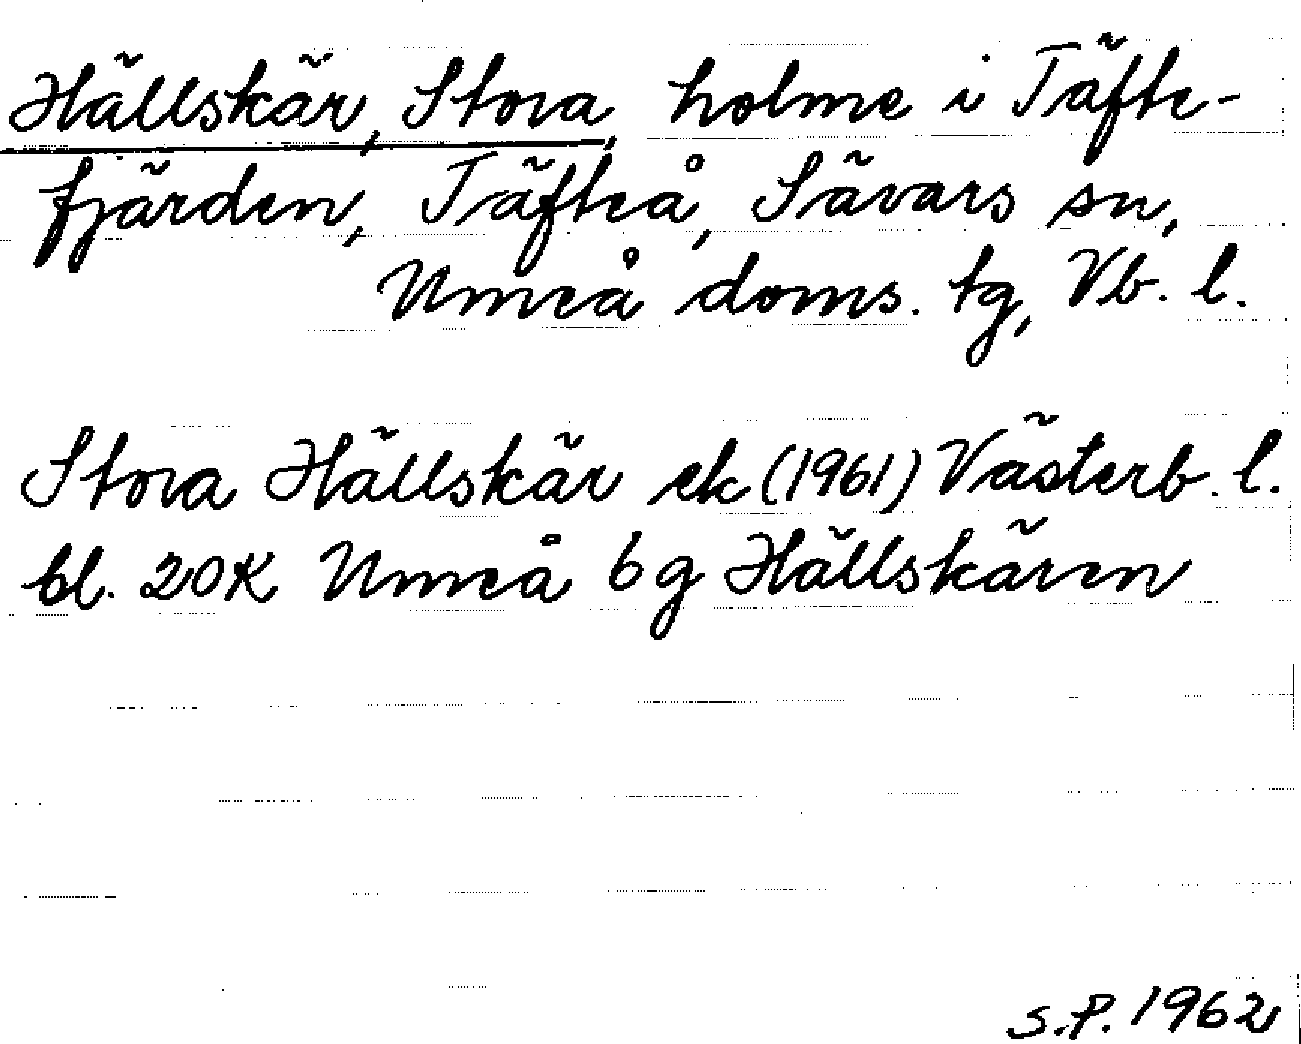 Hällskär, Stora, holme i Täfte-
fjärden, Täfteå, Sävars sn,
Umeå doms. tg, Vb. l.
Stora Hällskär ek (1961) Västerb. l.
bl. 20K Umeå 6g Hällskären
S.P. 1962